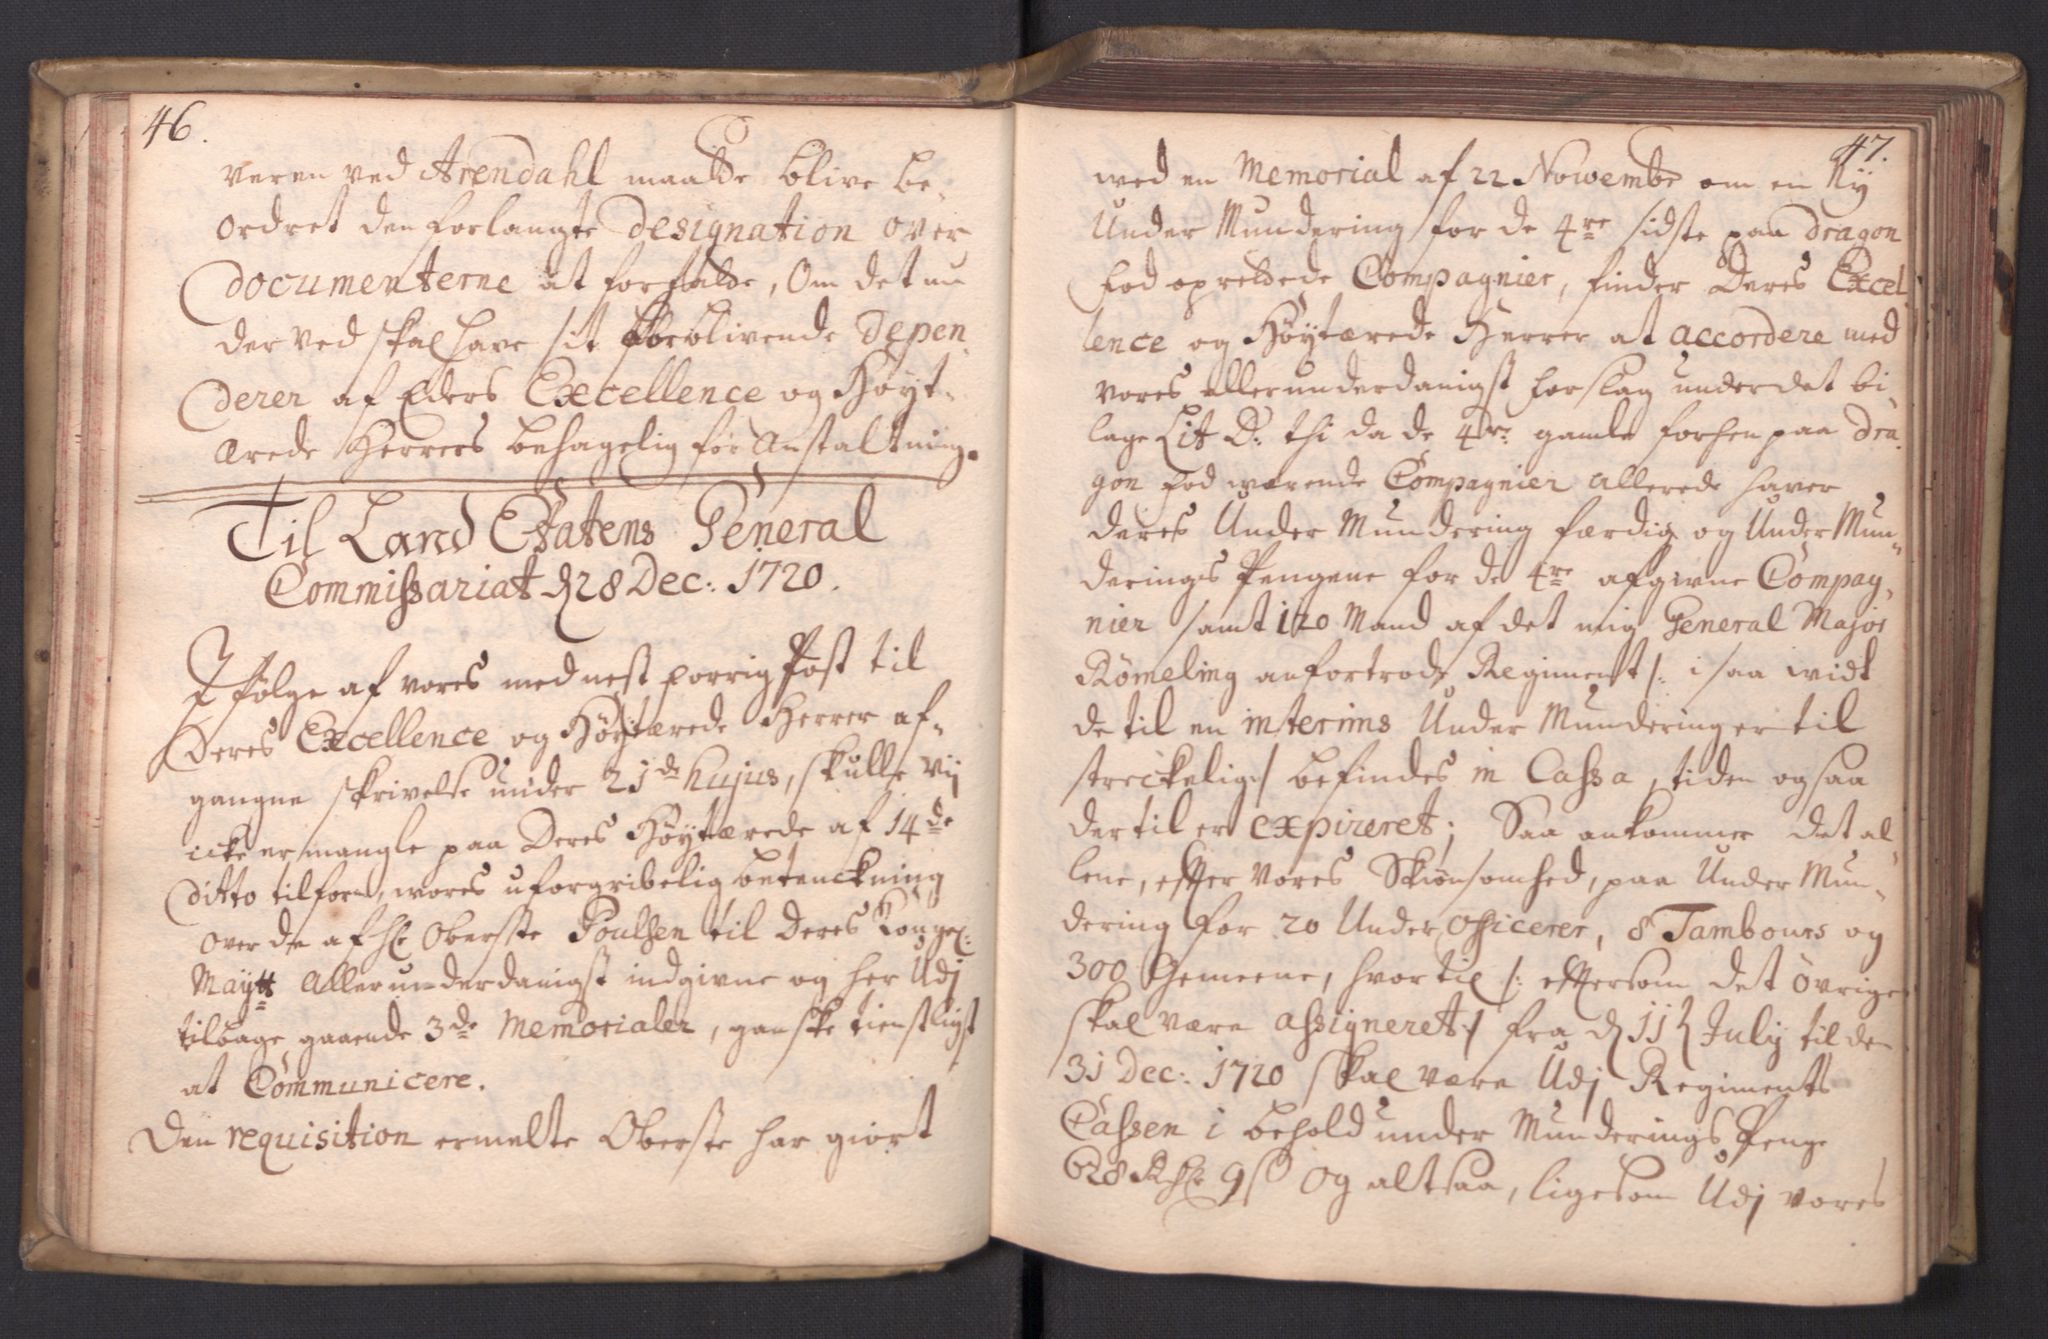 46.
veren ved Arendahl maatte blive be-
ordret den forlangte designation over
documenterne at forfatte, Om det nu
der ved skal have sit forblivende depen-
derer af Eders Excellence og Høyt-
ærede Herrers behagelig for Anstaltning.
Til Land Etatens General
Commissariat d 28 Dec: 1720.
I følge af vores med nest forrig Post til
Deres Excellence og Høytærede Herrer af-
gangne skrivelse under 21de hujus, skulle vij
icke ermangle paa Deres Høytærede af 14de
ditto tilforn, vores uforgribelig betenckning
over de af Hr Oberste Poulsen til Deres Kongel:
Maytt Allerunderdanigst indgivne og her Udj
tilbage gaaende 3de Memorialer, ganske tienstligst
at Communicere.
Den requisition ermelte Oberste har giort
47.
wed en Memorial af 22 Novembr om en Ny
Under Mundering for de 4re sidste paa dragon
fod oprettede Compagnier, finder Deres Excel-
lence og Høytærede Herrer at accordere med
vores allerunderdanigst forslag under det bi-
lage Lit D: thi da de 4re gamle forhen paa dra-
gon fod wærende Compagnier allerede haver
deres Under Mundering færdig og Under Mun-
derings Pengene for de 4re afgivne Compag-
nier samt 120 Mand af det mig General Major
Römeling anfortrode Regiment /: i saa widt
de til en interims Under Mundering er til
streckelig :/ befindes in Cassa, tiden ogsaa
dertil er expireret; Saa ankommer det al-
lene, efter vores Skiønsomhed, paa Under Mun-
dering for 20 Under Officerer, 8 Tambours og
300 Gemeene, hvortil /: eftersom det övrige
skal være assigneret :/ fra d 11 July til den
31 Dec: 1720 skal være Udj Regiments
Cassen i behold under Munderings Penge
628 Rdr 9 s Og altsaa, ligesom Udj vores